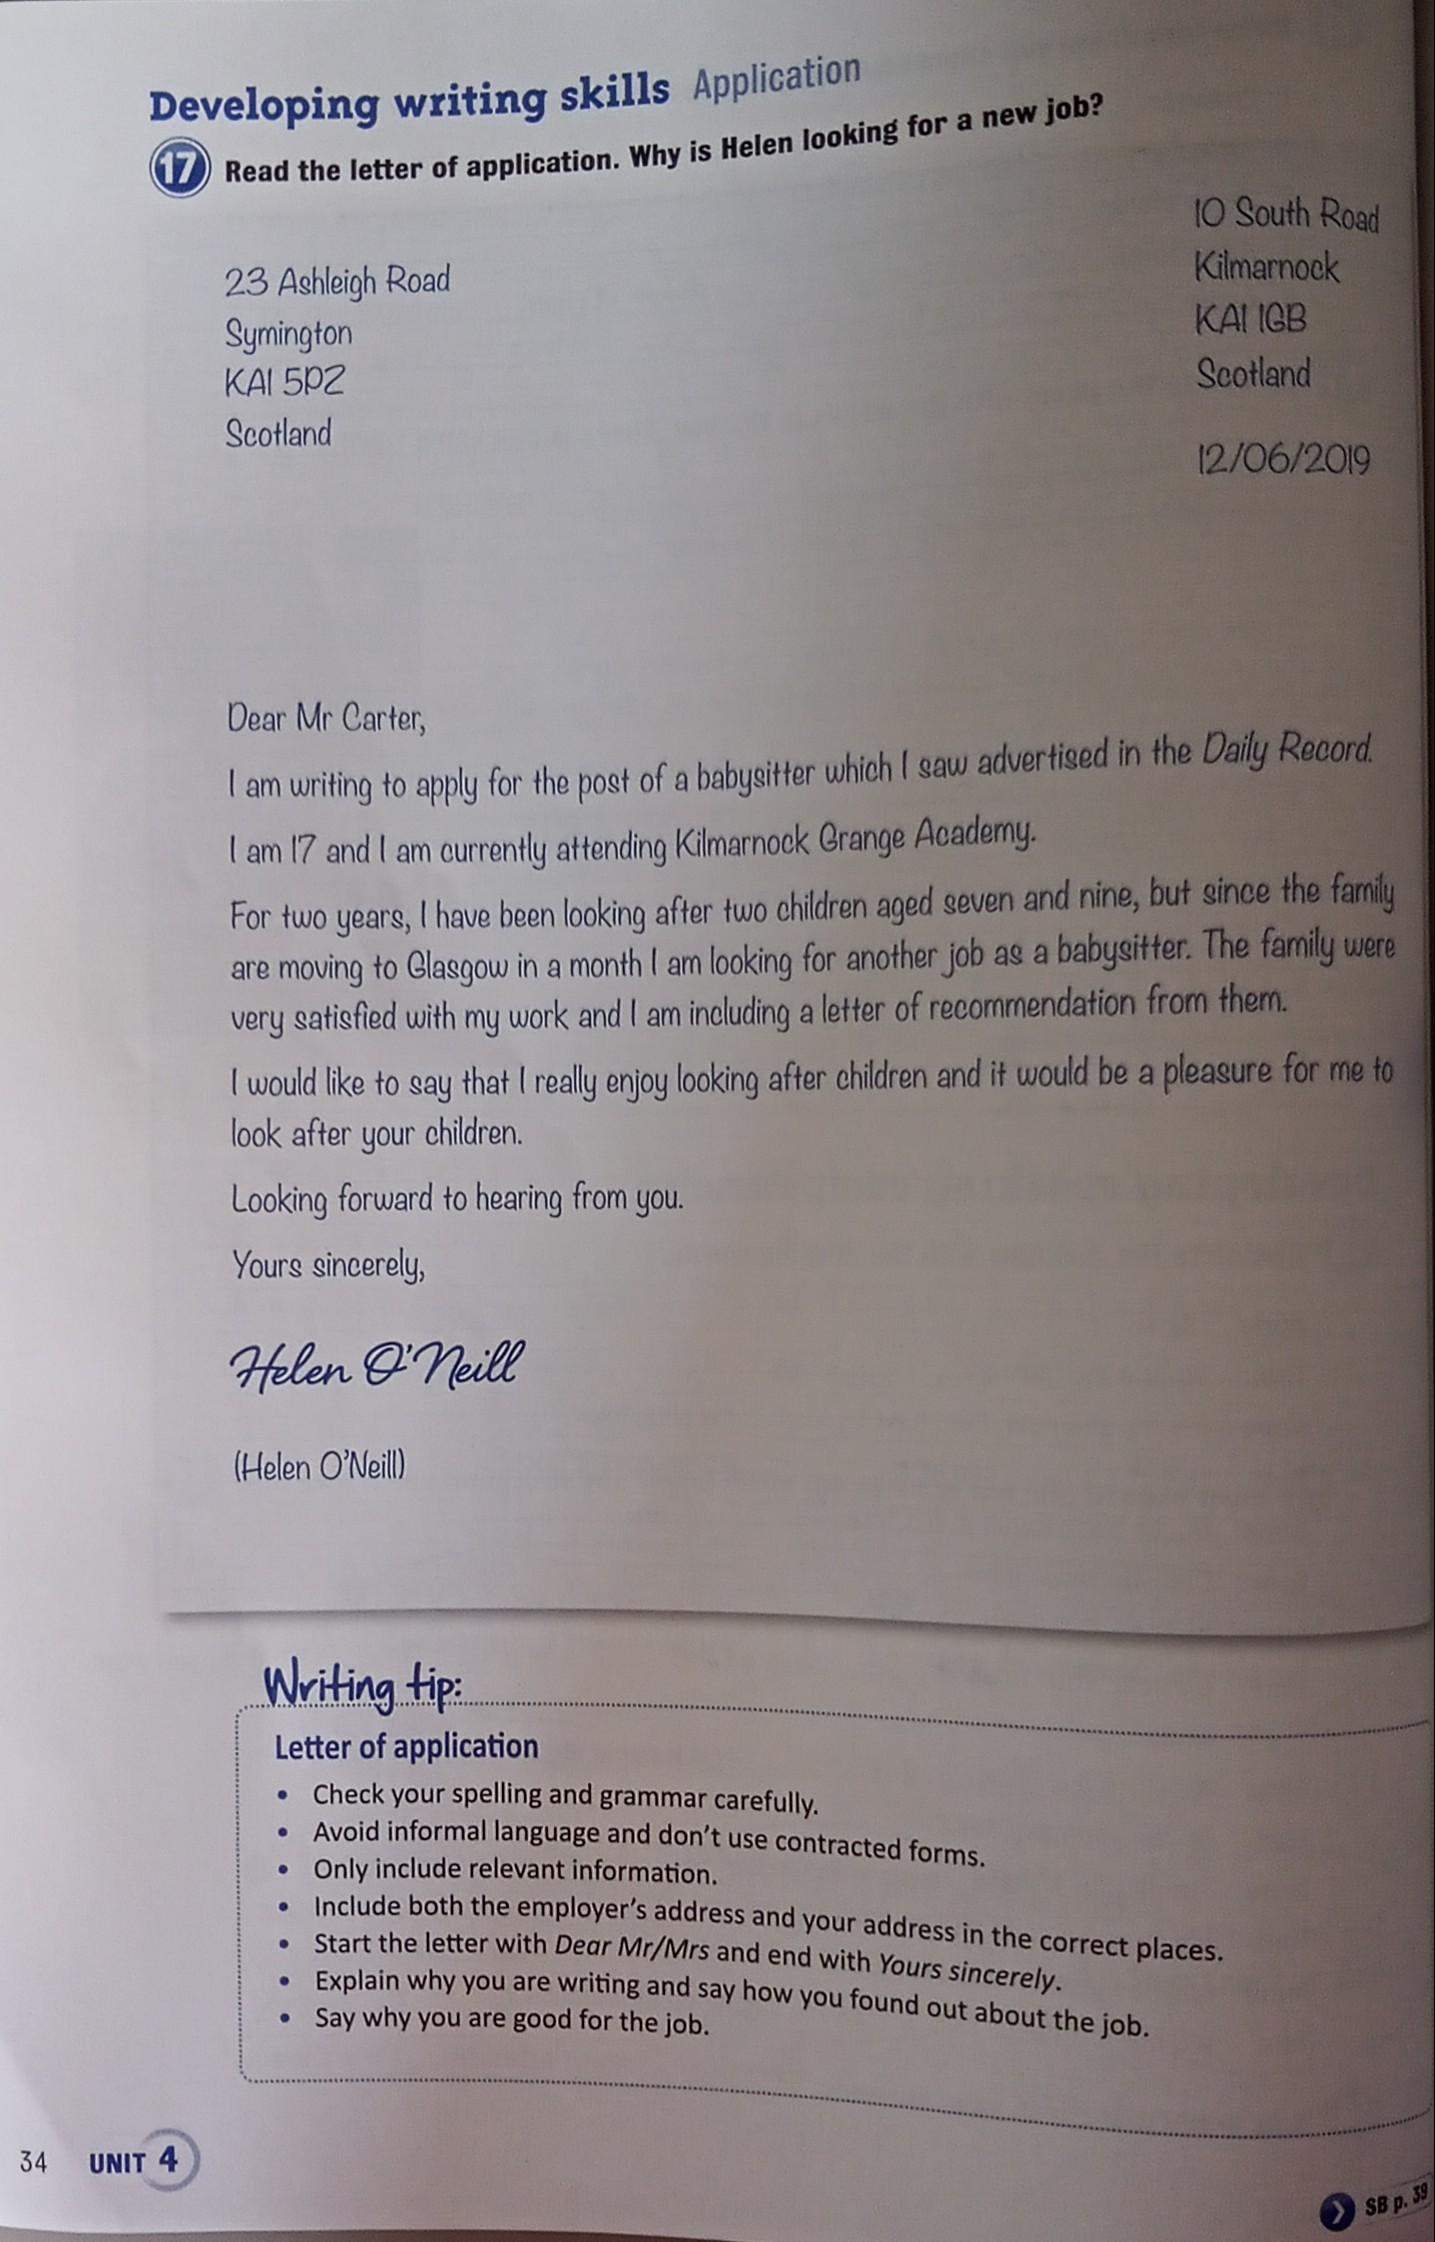 Developing writing skills Application
17 Read the letter of application. Why is Helen looking for a new job?
10 South Road
Kilmarnock
KA1 1GB
Scotland
12/06/2019
23 Ashleigh Road
Symington
KA1 5PZ
Scotland
Dear Mr Carter,
I am writing to apply for the post of a babysitter which I saw advertised in the Daily Record.
I am 17 and I am currently attending Kilmarnock Grange Academy.
For two years, I have been looking after two children aged seven and nine, but since the family
are moving to Glasgow in a month I am looking for another job as a babysitter. The family were
very satisfied with my work and I am including a letter of recommendation from them.
I would like to say that I really enjoy looking after children and it would be a pleasure for me to
look after your children.
Looking forward to hearing from you.
Yours sincerely,
Helen O'Neill
(Helen O'Neill)
Writing tip:
Letter of application
• Check your spelling and grammar carefully.
• Avoid informal language and don't use contracted forms.
• Only include relevant information.
• Include both the employer's address and your address in the correct places.
• Start the letter with Dear Mr/Mrs and end with Yours sincerely.
• Explain why you are writing and say how you found out about the job.
• Say why you are good for the job.
34 UNIT 4
SB p. 39